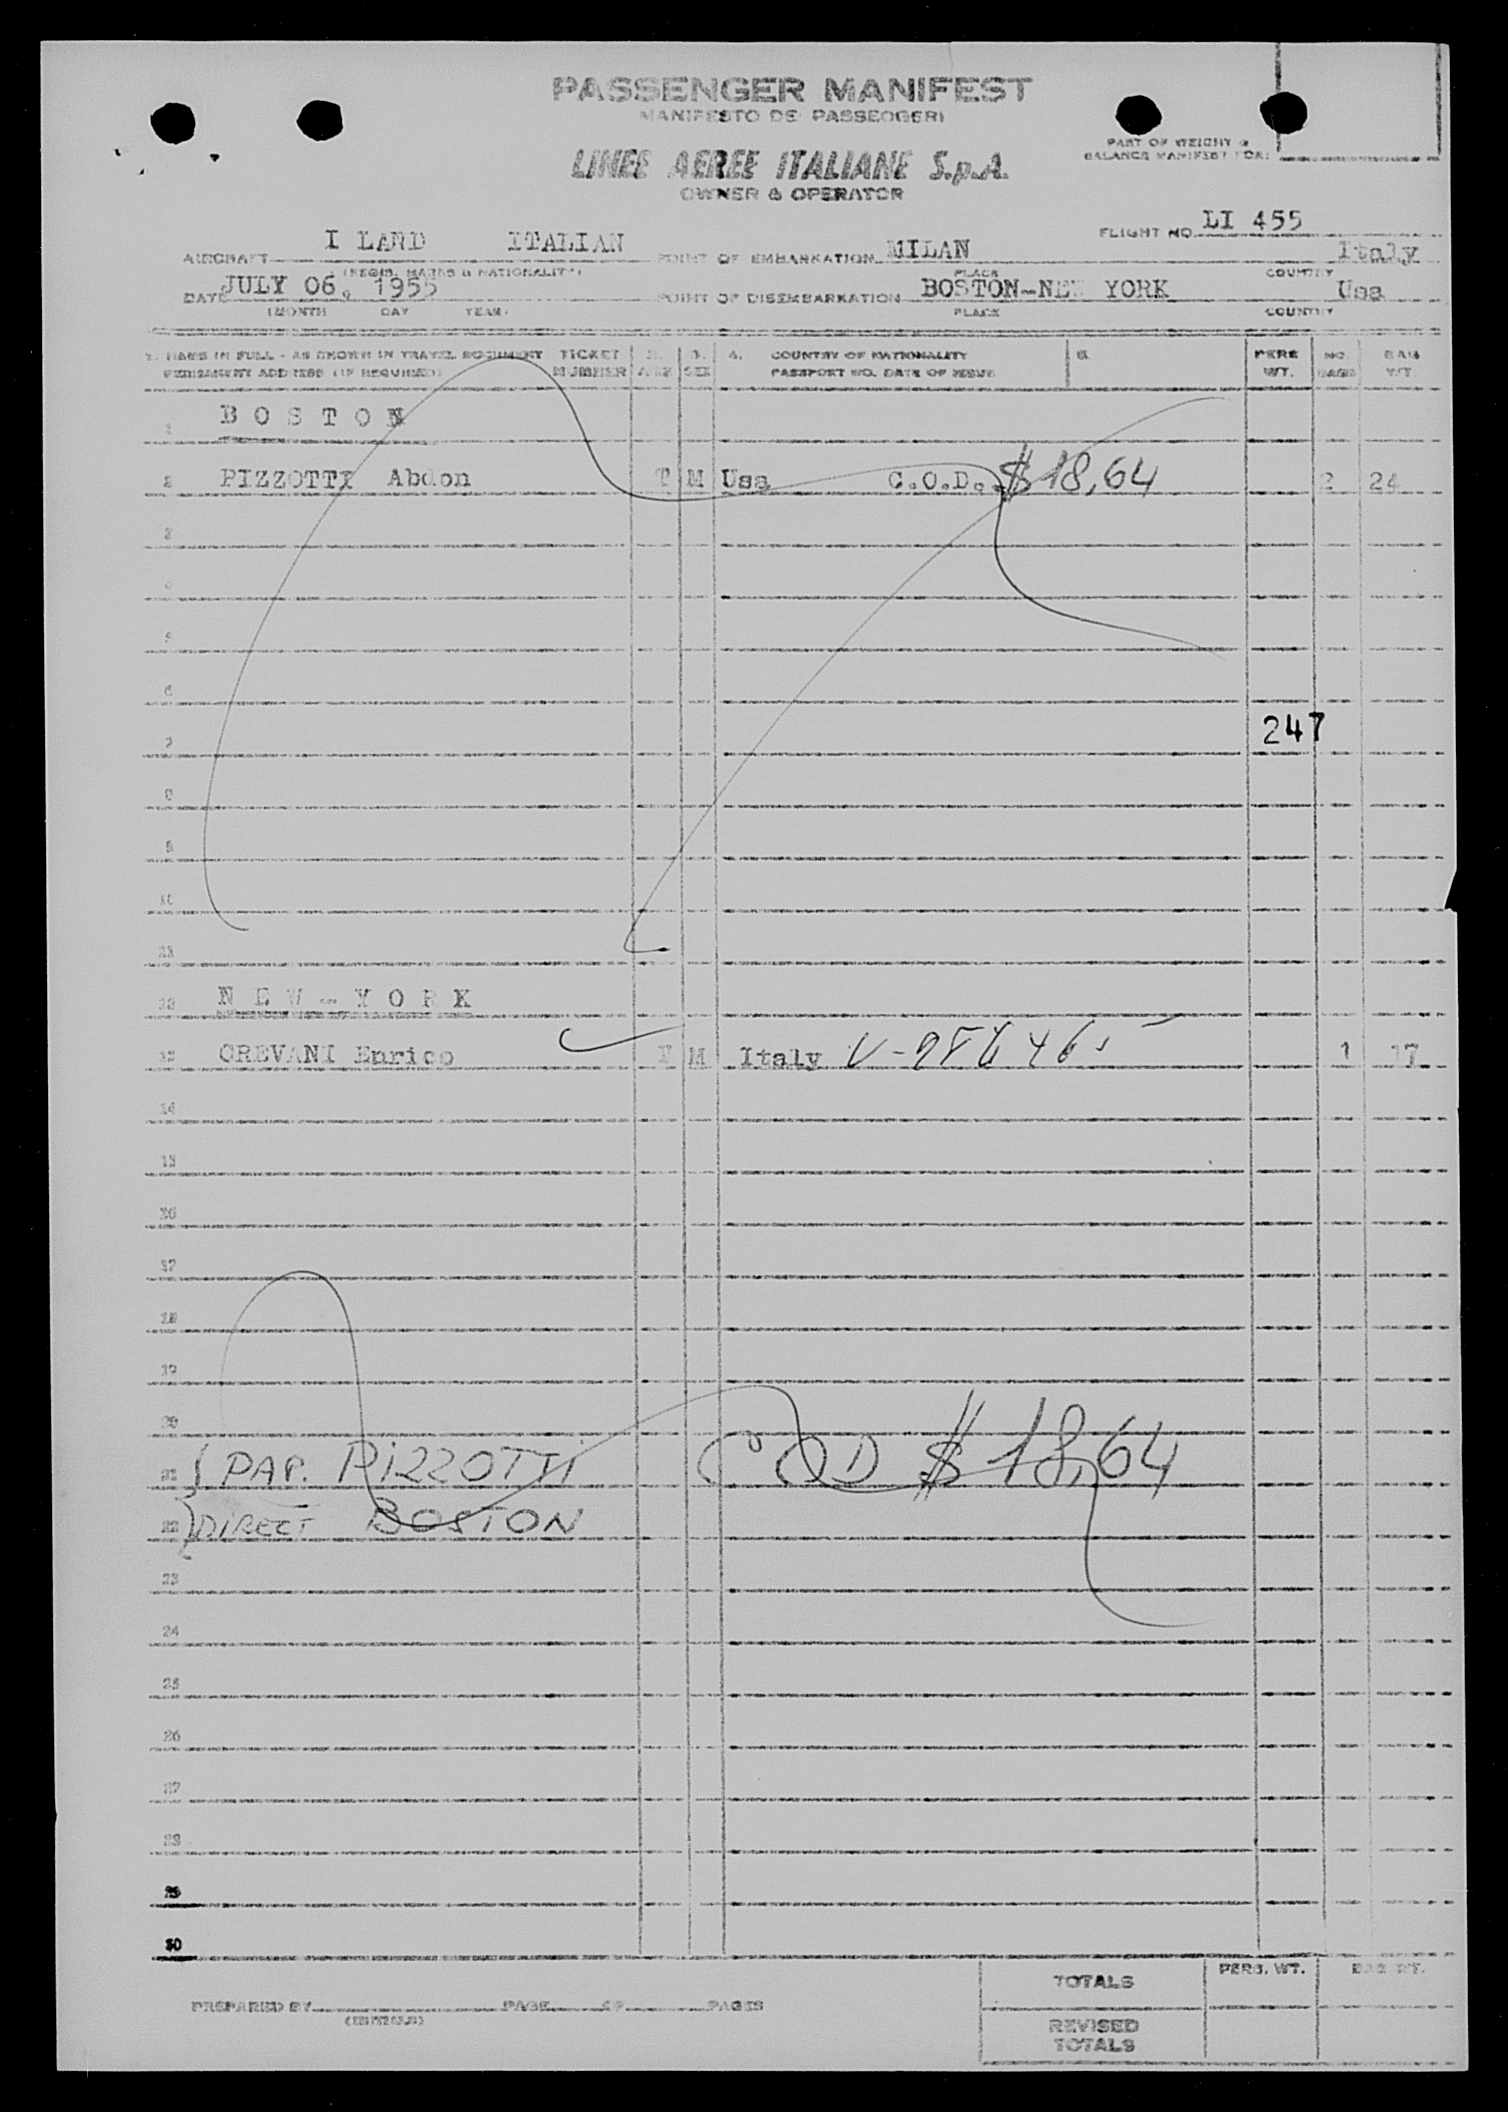 PASSENGER MANIFEST
MANIFESTO DEI PASSEGGERI
LINEE AEREE ITALIANE S.p.A.
OWNER & OPERATOR
PART OF WEIGHT &
BALANCE MANIFEST FOR:
AIRCRAFT I LARD ITALIAN
(REGIS. MARKS & NATIONALITY)
POINT OF EMBARKATION MILAN Italy
PLACE COUNTRY
FLIGHT NO. LI 455
DATE JULY 06, 1955
(MONTH DAY YEAR)
POINT OF DISEMBARKATION BOSTON-NEW YORK Usa
PLACE COUNTRY
1. NAME IN FULL - AS SHOWN IN TRAVEL DOCUMENT TICKET 2. 3. 4. COUNTRY OF NATIONALITY 5. PERS NO. BAG
PERMANENT ADDRESS (IF REQUIRED) NUMBER AGE SEX PASSPORT NO. DATE OF ISSUE WT. BAGS WT.
1 BOSTON
2 PIZZOTTI Abdon T M Usa C.O.D. $18,64 2 24
3
4
5
6
7 247
8
9
10
11
12 NEW-YORK
13 CREVANI Enrico M Italy 1 17
14
15
16
17
18
19
20
21 PAP. PIZZOTTI COD $18,64
22 DIRECT BOSTON
23
24
25
26
27
28
29
30
TOTALS PERS. WT. BAG. WT.
PREPARED BY PAGE OF PAGES
REVISED
TOTALS